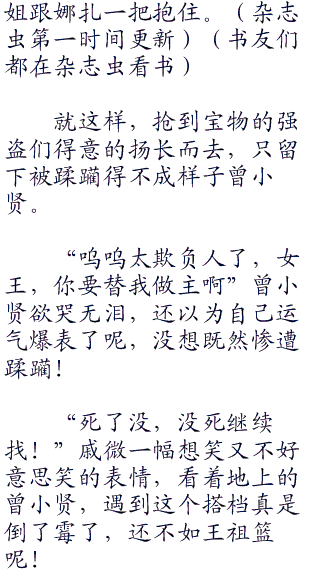 姐跟娜扎一把抱住。（杂志
虫第一时间更新）（书友们
都在杂志虫看书）
就这样，抢到宝物的强
盗们得意的扬长而去，只留
下被蹂躏得不成样子曾小
贤。
“呜呜太欺负人了，女
王，你要替我做主啊”曾小
贤欲哭无泪，还以为自己运
气爆表了呢，没想既然惨遭
蹂躏！
“死了没，没死继续
找！”戚微一幅想笑又不好
意思笑的表情，看着地上的
曾小贤，遇到这个搭档真是
倒了霉了，还不如王祖篮
呢！